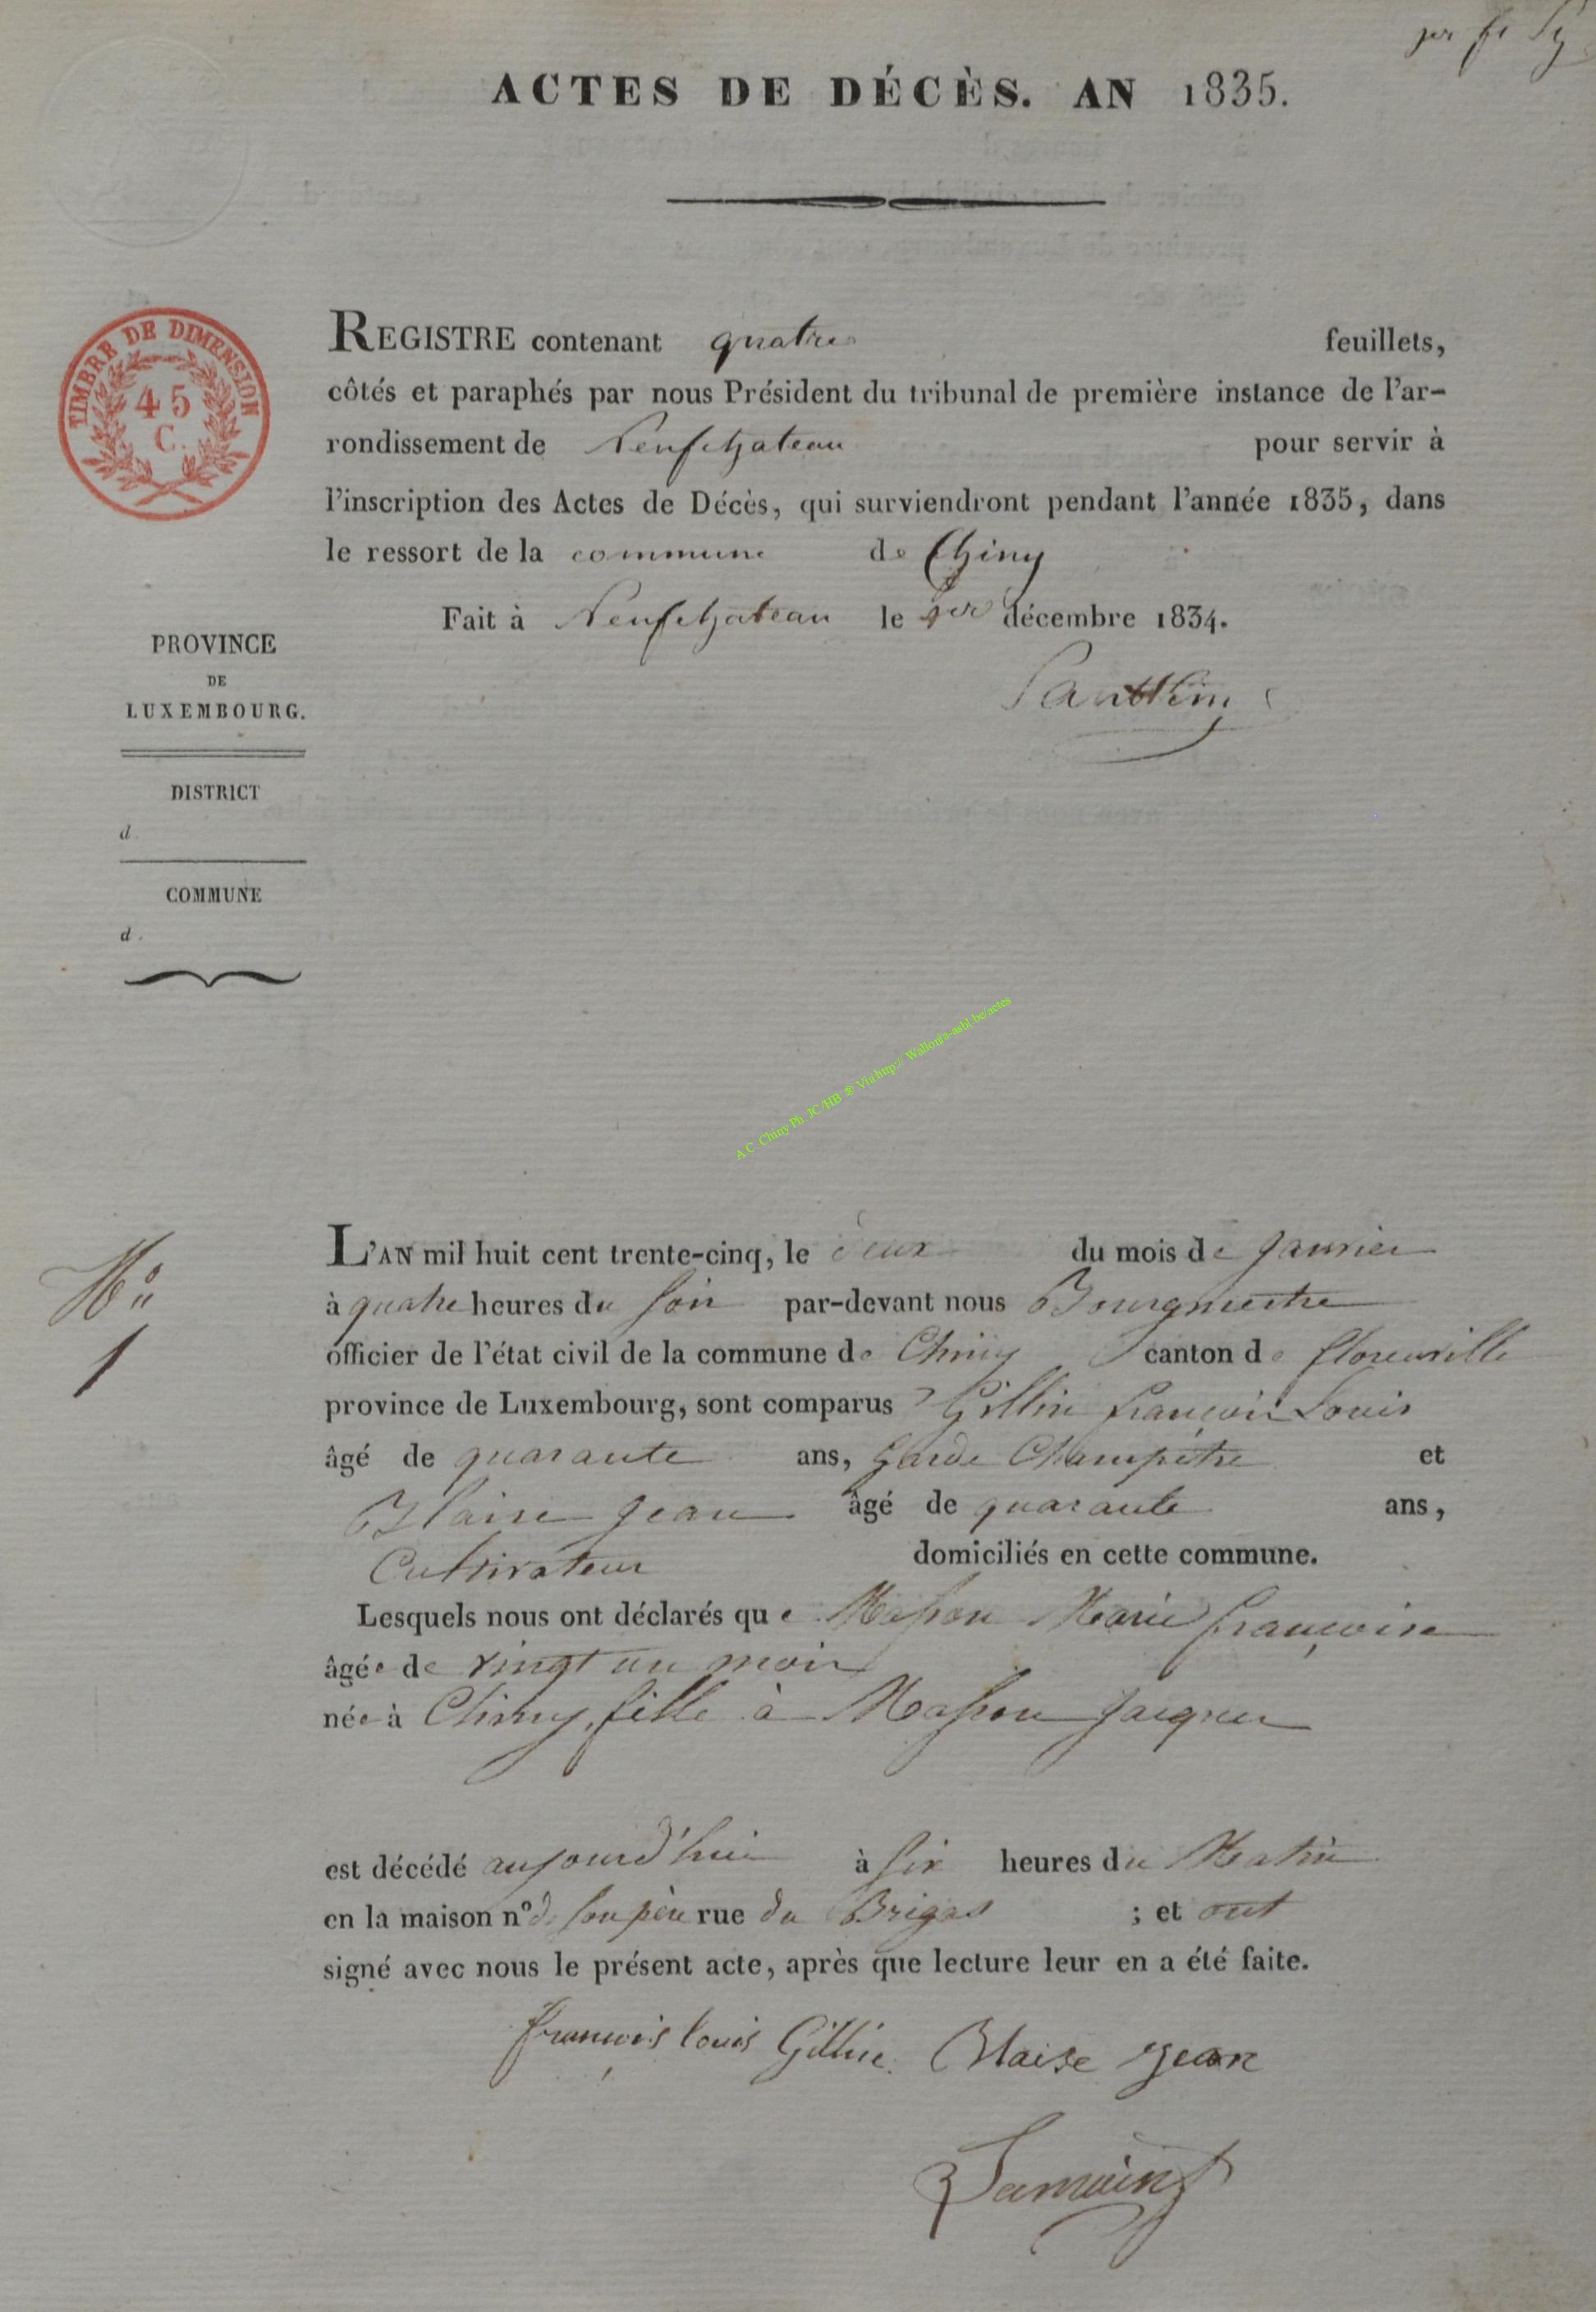 ACTES DE DÉCÈS. AN 1835.
TIMBRE DE DIMENSION
45
C.
REGISTRE contenant quatre feuillets,
côtés et paraphés par nous Président du tribunal de première instance de l'ar-
rondissement de Neufchateau pour servir à
l'inscription des Actes de Décès, qui surviendront pendant l'année 1835, dans
le ressort de la commune de Chiny
Fait à Neufchateau le 1er décembre 1834.
PROVINCE
DE
LUXEMBOURG.
DISTRICT
d
COMMUNE
d.
A C Chiny Ph JC/HB ® Via http:// Wallonia-asbl be/actes
N°
1
L'AN mil huit cent trente-cinq, le deux du mois de Janvier
à quatre heures du soir par-devant nous Bourgmestre
officier de l'état civil de la commune de Chiny canton de florenville
province de Luxembourg, sont comparus Gillin françois Louis
âgé de quarante ans, Garde Champêtre et
Blaise Jean âgé de quarante ans,
Cultivateur domiciliés en cette commune.
Lesquels nous ont déclarés que Masson Marie françoise
âgée de vingt un mois
née à Chiny, fille à Masson Jacques
est décédé aujourd'hui à six heures du Matin
en la maison n° de son père rue du Brigas ; et ont
signé avec nous le présent acte, après que lecture leur en a été faite.
françois louis Gillin. Blaise jean